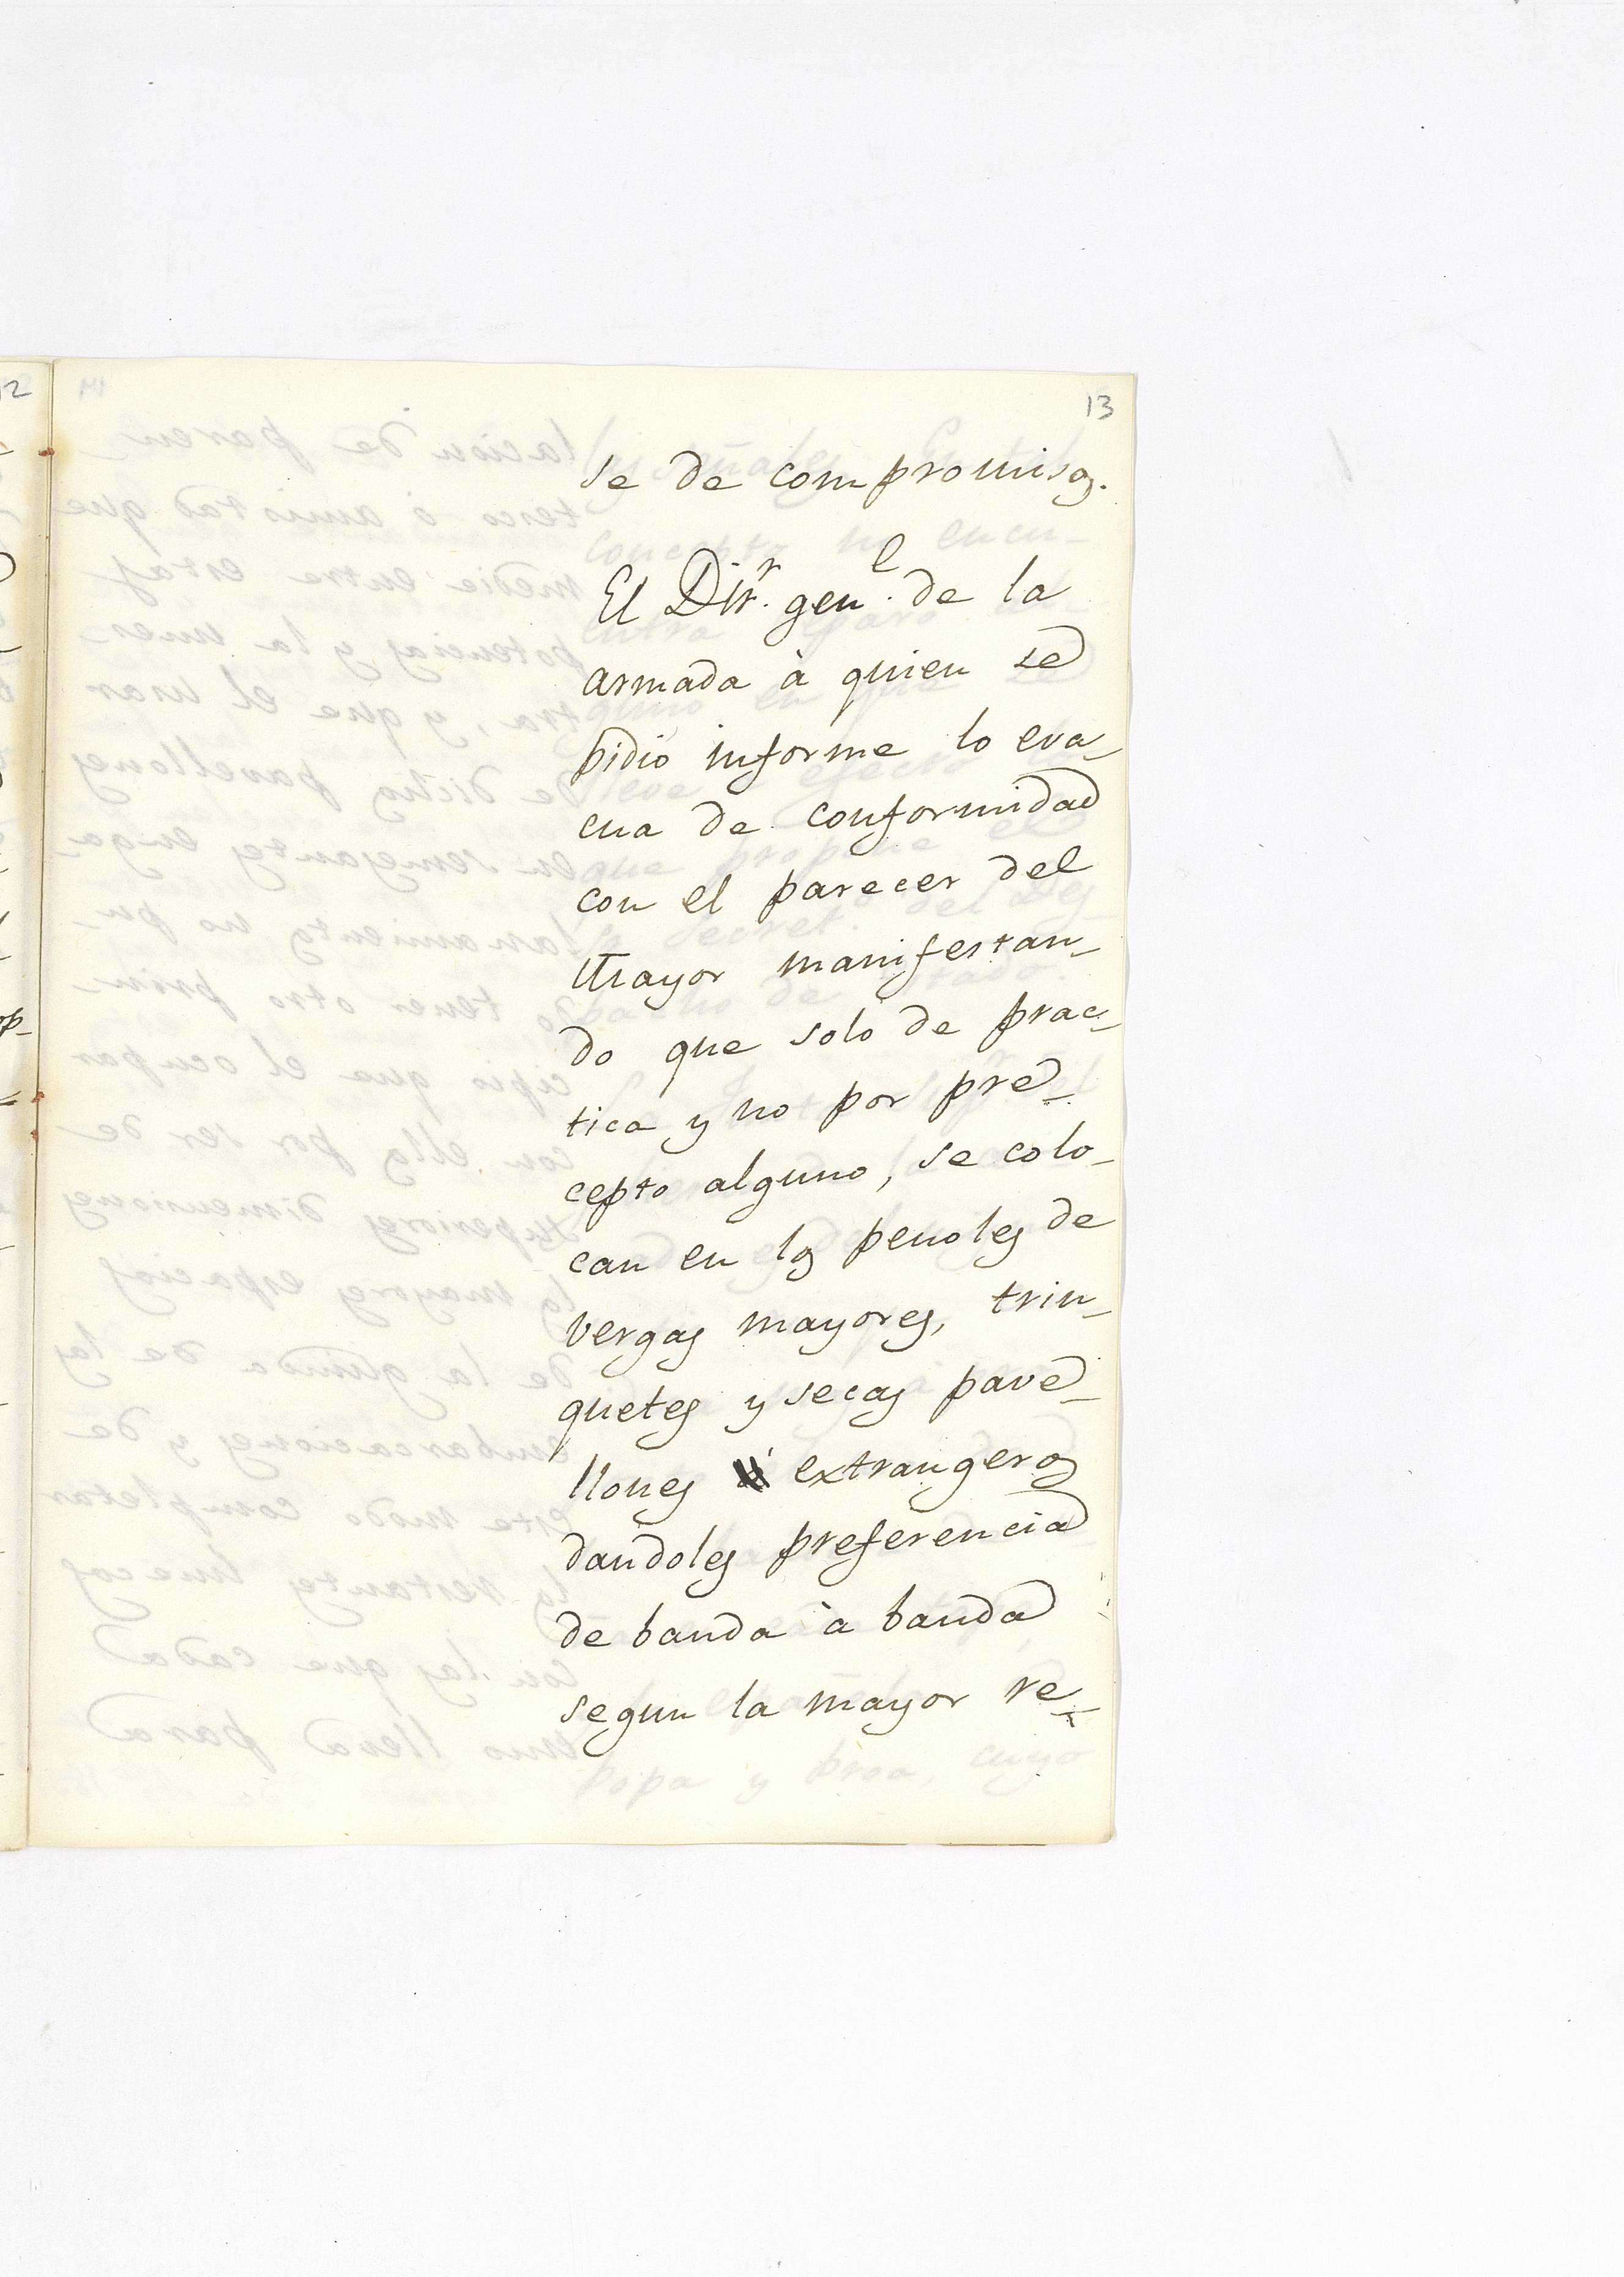 13
se de compromisos.
El Dirr. genl. de la
armada à quien se
pidió informe lo eva-
cua de conformidad
con el parecer del
Mayor manifestan-
do que solo de prac-
tica y no por pre-
cepto alguno, se colo-
can en los penoles de
vergas mayores, trin-
quetes y secas pave-
llones extrangeros
dandoles preferencia
de banda à banda
segun la mayor re-
12